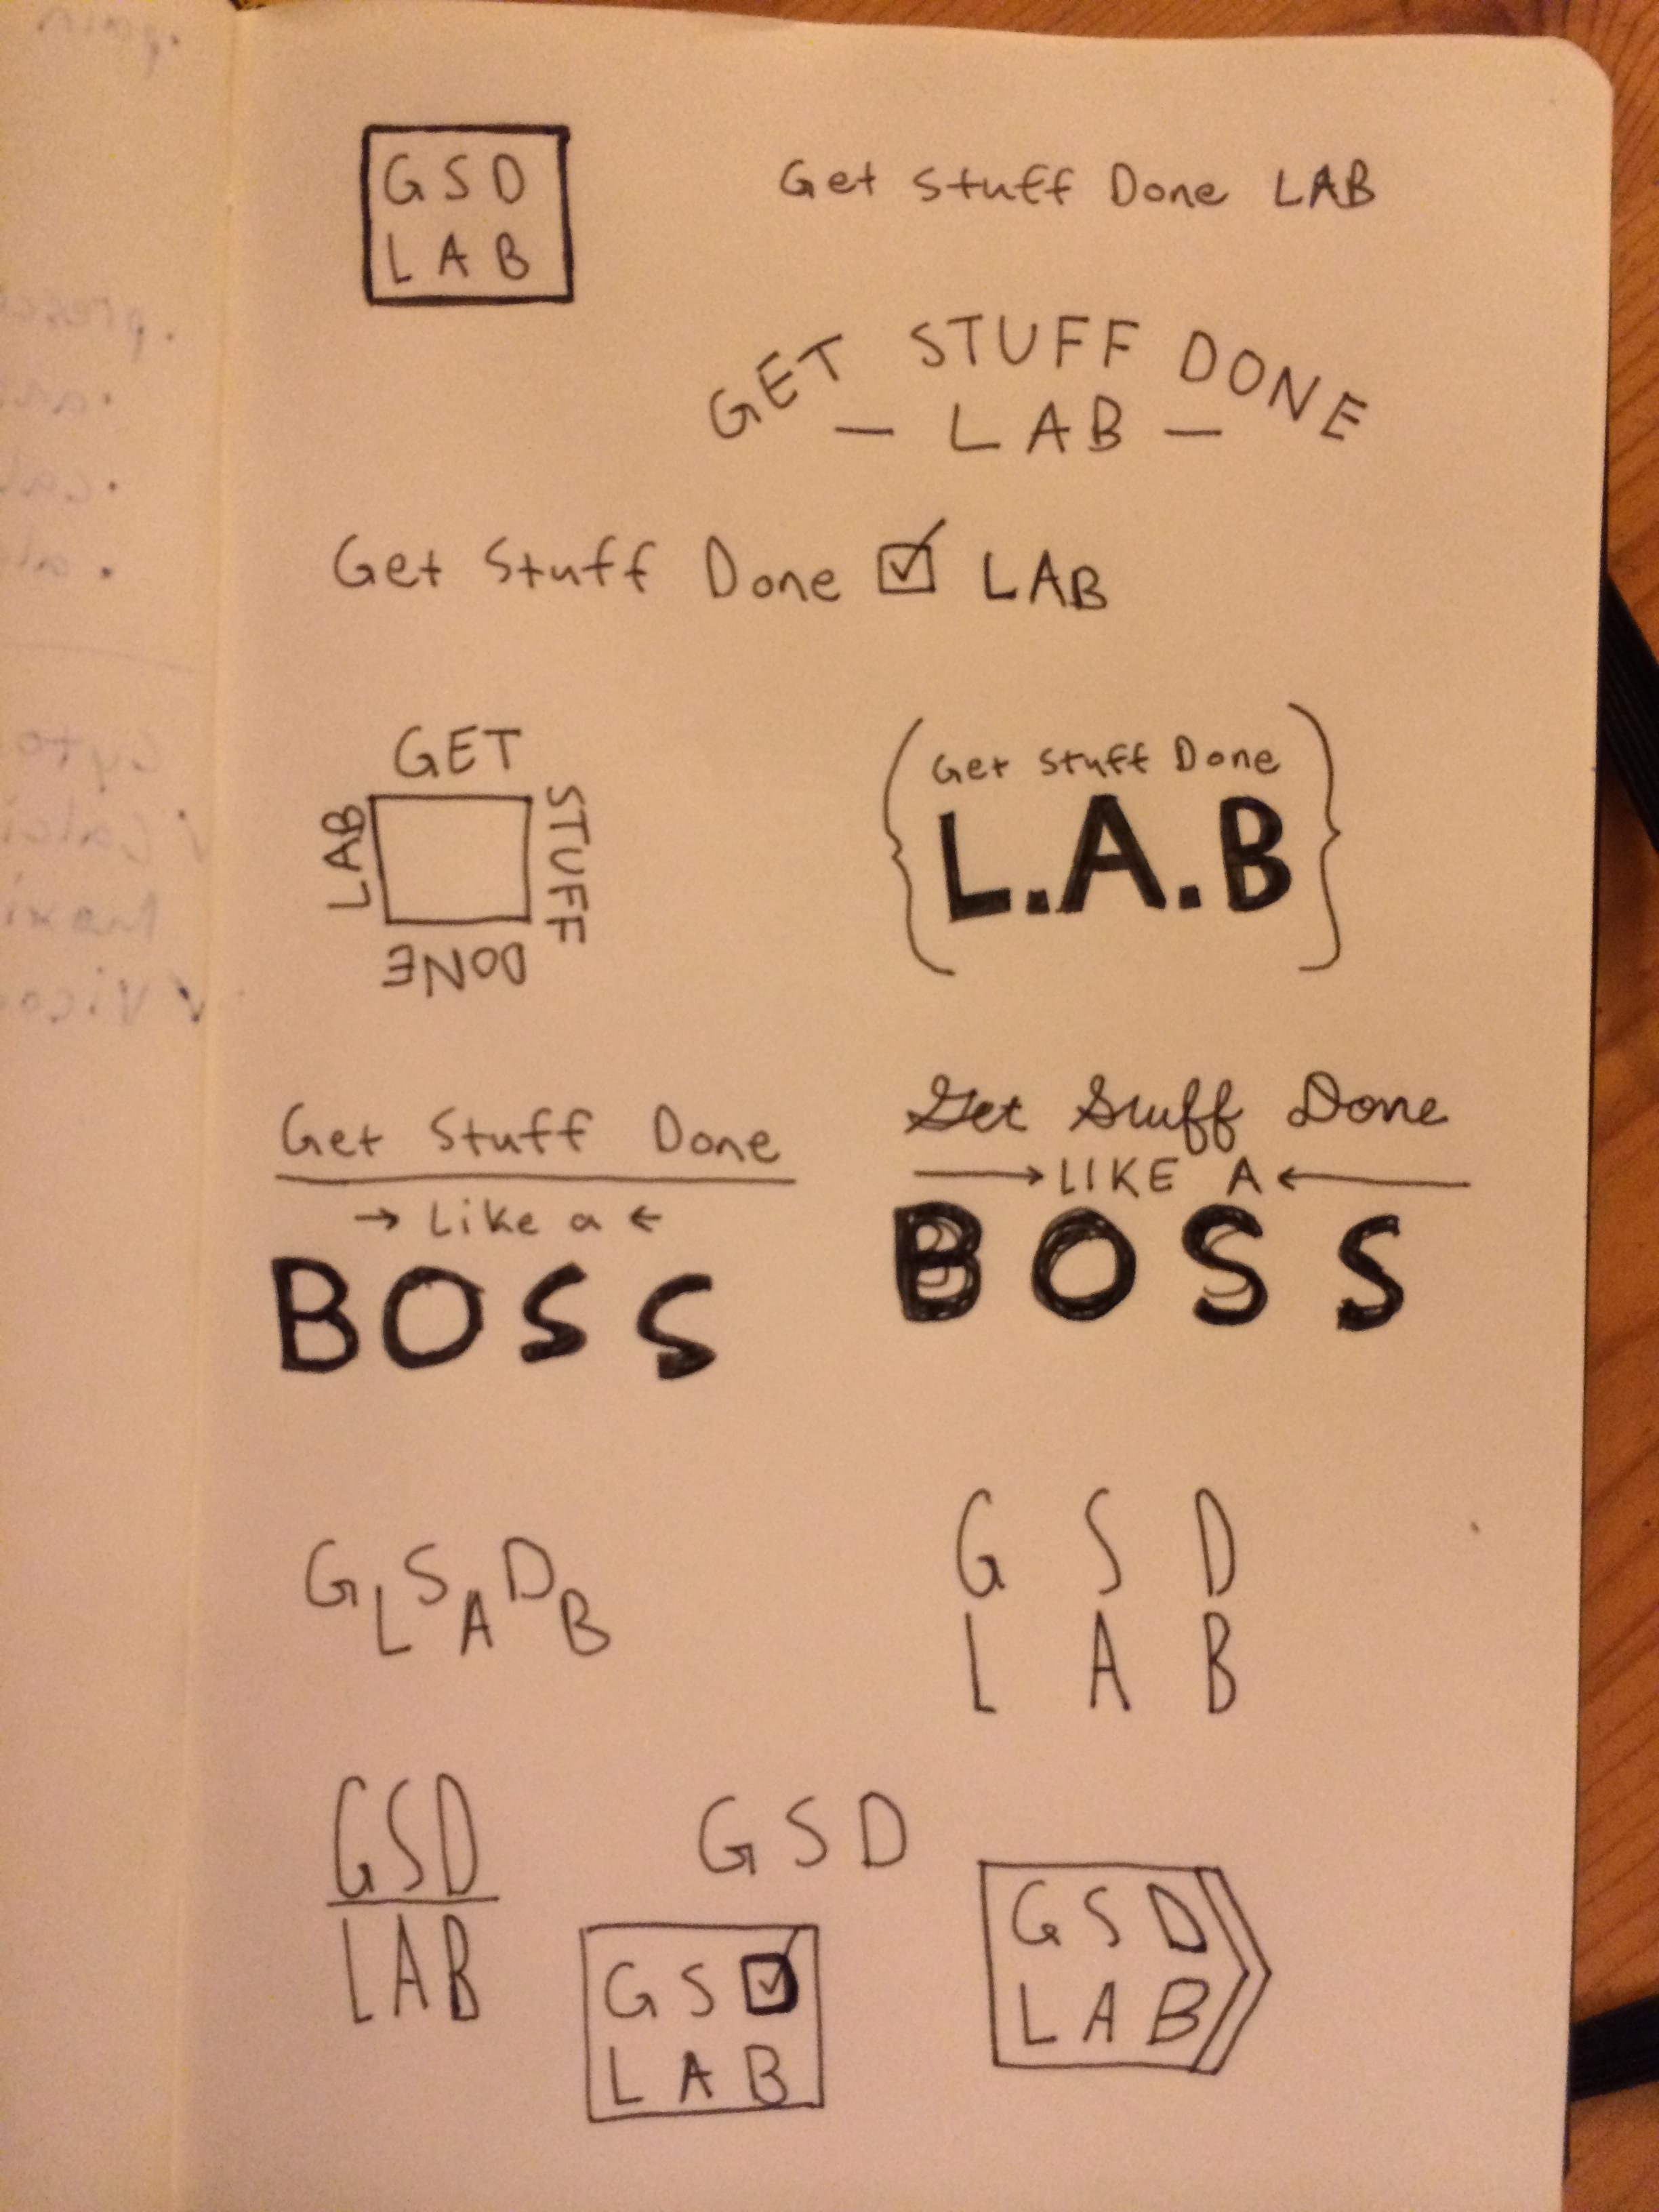 GSD
LAB
Get Stuff Done LAB
GET STUFF DONE
— LAB —
Get Stuff Done ☑ LAB
GET
STUFF
DONE
LAB
{ Get Stuff Done
L.A.B }
Get Stuff Done
→ Like a ←
BOSS
Get Stuff Done
→ LIKE A ←
BOSS
GLSADB
GSD
LAB
GSD
LAB
GSD
GS☑
LAB
GSD
LAB